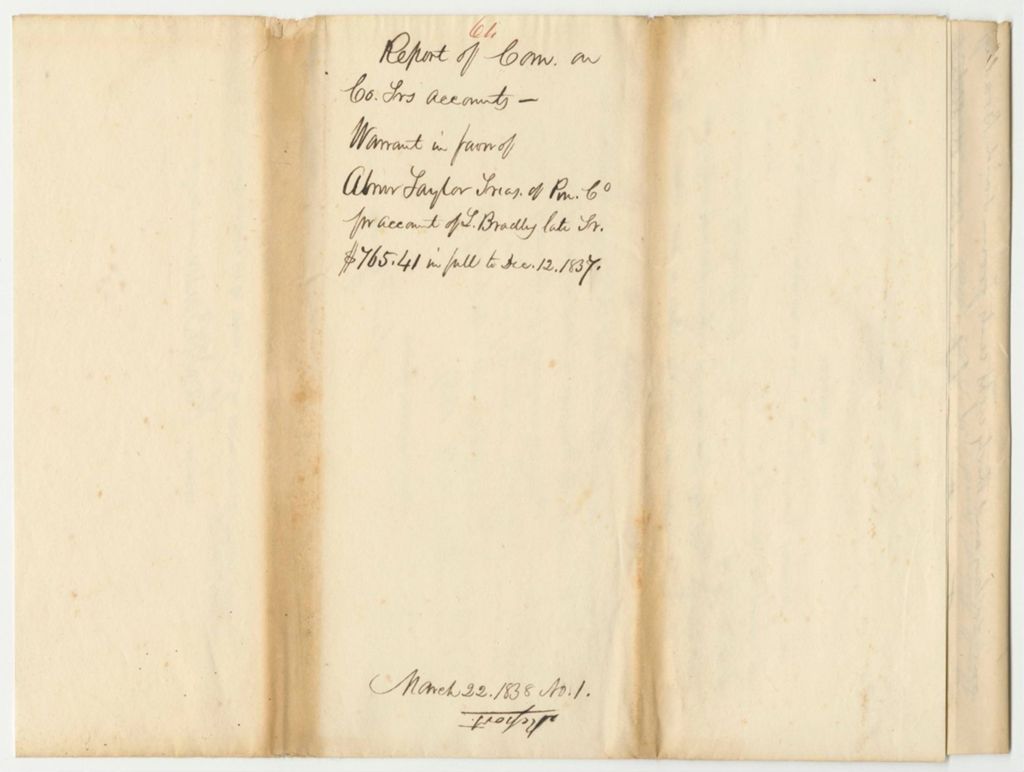 64
Report of Com. on
Co. Trs accounts —
Warrant in favor of
Abner Taylor Treas. of Pen. Co
for account of L. Bradley late Tr.
$765.41 in full to Dec. 12. 1837.
March 22. 1838 No. 1.
Report